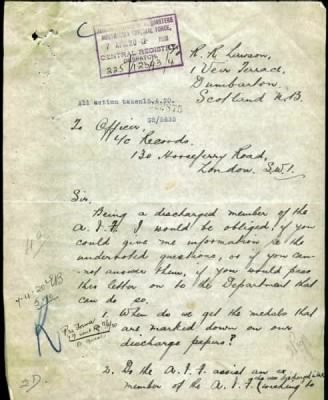 HEADQUARTERS
AUSTRALIAN IMPERIAL FORCE,
7 APR 20
CENTRAL REGISTRY
DESPATCH
225/12343/4
R. R. Lawson,
1 Veir Terrace,
Dumbarton,
Scotland N.B.
All action taken
22/5635
To Officer
i/c Records.
130 Horseferry Road,
London, S.W.1.
Sir.
Being a discharged member of the
A. I. F. I would be obliged, if you
could give me information re the
undernoted questions, or if you can-
not answer them, if you would pass
this letter on to the Department that
can do so.
1. When do we get the medals that
are marked down on our
discharge papers?
2. Do the A. I. F. assist an ex
member of the A. I. F. (wishing to